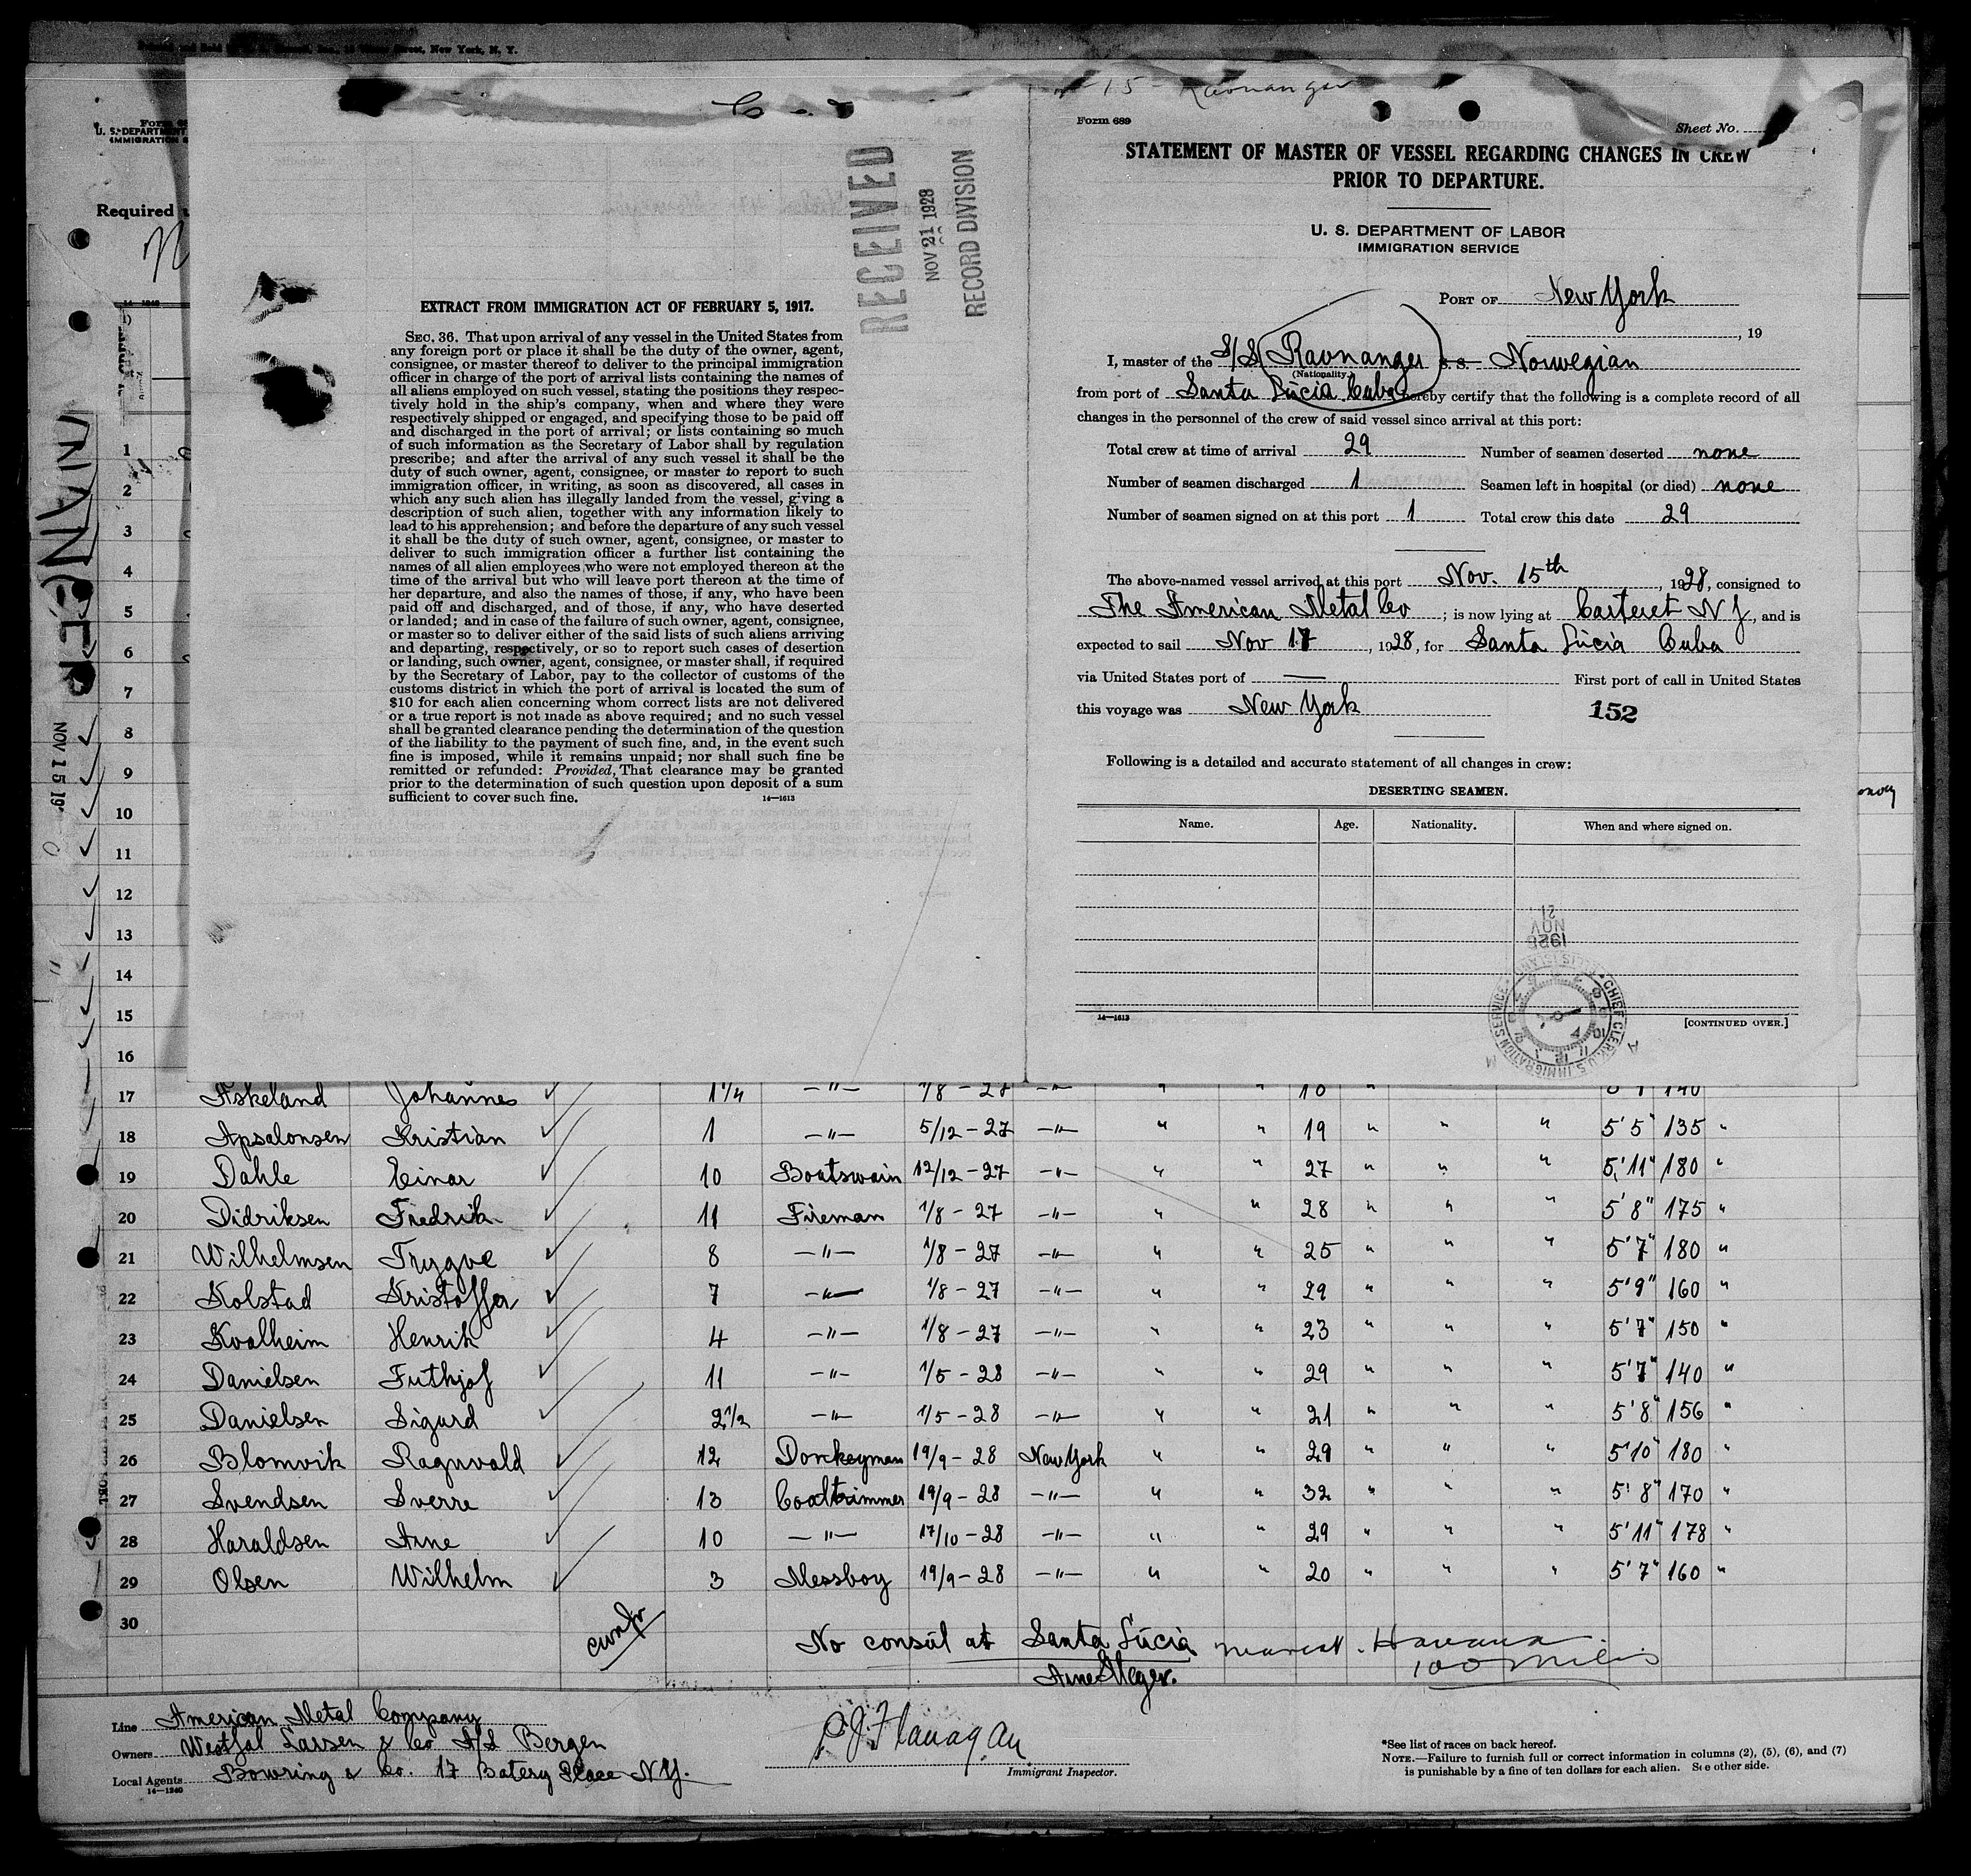 New York, N. Y.
U. S. DEPARTMENT
IMMIGRATION S
Required
EXTRACT FROM IMMIGRATION ACT OF FEBRUARY 5, 1917.
SEC. 36. That upon arrival of any vessel in the United States from
any foreign port or place it shall be the duty of the owner, agent,
consignee, or master thereof to deliver to the principal immigration
officer in charge of the port of arrival lists containing the names of
all aliens employed on such vessel, stating the positions they respec-
tively hold in the ship's company, when and where they were
respectively shipped or engaged, and specifying those to be paid off
and discharged in the port of arrival; or lists containing so much
of such information as the Secretary of Labor shall by regulation
prescribe; and after the arrival of any such vessel it shall be the
duty of such owner, agent, consignee, or master to report to such
immigration officer, in writing, as soon as discovered, all cases in
which any such alien has illegally landed from the vessel, giving a
description of such alien, together with any information likely to
lead to his apprehension; and before the departure of any such vessel
it shall be the duty of such owner, agent, consignee, or master to
deliver to such immigration officer a further list containing the
names of all alien employees who were not employed thereon at the
time of the arrival but who will leave port thereon at the time of
her departure, and also the names of those, if any, who have been
paid off and discharged, and of those, if any, who have deserted
or landed; and in case of the failure of such owner, agent, consignee,
or master so to deliver either of the said lists of such aliens arriving
and departing, respectively, or so to report such cases of desertion
or landing, such owner, agent, consignee, or master shall, if required
by the Secretary of Labor, pay to the collector of customs of the
customs district in which the port of arrival is located the sum of
$10 for each alien concerning whom correct lists are not delivered
or a true report is not made as above required; and no such vessel
shall be granted clearance pending the determination of the question
of the liability to the payment of such fine, and, in the event such
fine is imposed, while it remains unpaid; nor shall such fine be
remitted or refunded: Provided, That clearance may be granted
prior to the determination of such question upon deposit of a sum
sufficient to cover such fine.
14—1613
RECEIVED
NOV 21 1928
RECORD DIVISION
15 - Ravnanger
Form 689
Sheet No.
STATEMENT OF MASTER OF VESSEL REGARDING CHANGES IN CREW
PRIOR TO DEPARTURE.
U. S. DEPARTMENT OF LABOR
IMMIGRATION SERVICE
PORT OF New York
, 19
I, master of the S/S Ravnanger S. S. Norwegian
(Nationality.)
from port of Santa Lucia Cuba hereby certify that the following is a complete record of all
changes in the personnel of the crew of said vessel since arrival at this port:
Total crew at time of arrival 29 Number of seamen deserted none
Number of seamen discharged 1 Seamen left in hospital (or died) none
Number of seamen signed on at this port 1 Total crew this date 29
The above-named vessel arrived at this port Nov. 15th, 1928, consigned to
The American Metal Co; is now lying at Carteret NJ, and is
expected to sail Nov 17, 1928, for Santa Lucia Cuba
via United States port of — First port of call in United States
this voyage was New York 152
Following is a detailed and accurate statement of all changes in crew:
DESERTING SEAMEN.
Name. Age. Nationality. When and where signed on.
NOV 21 1928
CHIEF CLERK U. S. IMMIGRATION SERVICE ELLIS ISLAND
14—1613
[CONTINUED OVER.]
NOV 15 19
1
2
3
4
5
6
7
8
9
10
11
12
13
14
15
16
17 Askeland Johannes 1 1/4 —"— 1/8 - 27 —"— " " 18 "
18 Apsalonsen Kristian 1 —"— 5/12 - 27 —"— " " 19 " " " 5'5" 135 "
19 Dahle Einar 10 Boatswain 12/12 - 27 —"— " " 27 " " " 5'11" 180 "
20 Didriksen Fredrik 11 Fireman 1/8 - 27 —"— " " 28 " " " 5'8" 175 "
21 Wilhelmsen Trygve 8 —"— 1/8 - 27 —"— " " 25 " " " 5'7" 180 "
22 Kolstad Kristoffer 7 —"— 1/8 - 27 —"— " " 29 " " " 5'9" 160 "
23 Kvalheim Henrik 4 —"— 1/8 - 27 —"— " " 23 " " " 5'7" 150 "
24 Danielsen Futhjof 11 —"— 1/5 - 28 —"— " " 29 " " " 5'7" 140 "
25 Danielsen Sigurd 2 1/2 —"— 1/5 - 28 —"— " " 21 " " " 5'8" 156 "
26 Blomvik Ragnvald 12 Donkeyman 19/9 - 28 New York " " 29 " " " 5'10" 180 "
27 Svendsen Sverre 13 Coaltrimmer 19/9 - 28 —"— " " 32 " " " 5'8" 170 "
28 Haraldsen Arne 10 —"— 17/10 - 28 —"— " " 29 " " " 5'11" 178 "
29 Olsen Wilhelm 3 Messboy 19/9 - 28 —"— " " 20 " " " 5'7" 160 "
30
No consul at Santa Lucia nearest. Havana.
100 miles
Arne Meyer.
Line American Metal Company
Owners Westfal Larsen & Co A/S Bergen
Local Agents Bowring & Co. 17 Batery Place N.Y.
14—1240
P. J. Flanagan
Immigrant Inspector.
*See list of races on back hereof.
NOTE.—Failure to furnish full or correct information in columns (2), (5), (6), and (7)
is punishable by a fine of ten dollars for each alien. See other side.